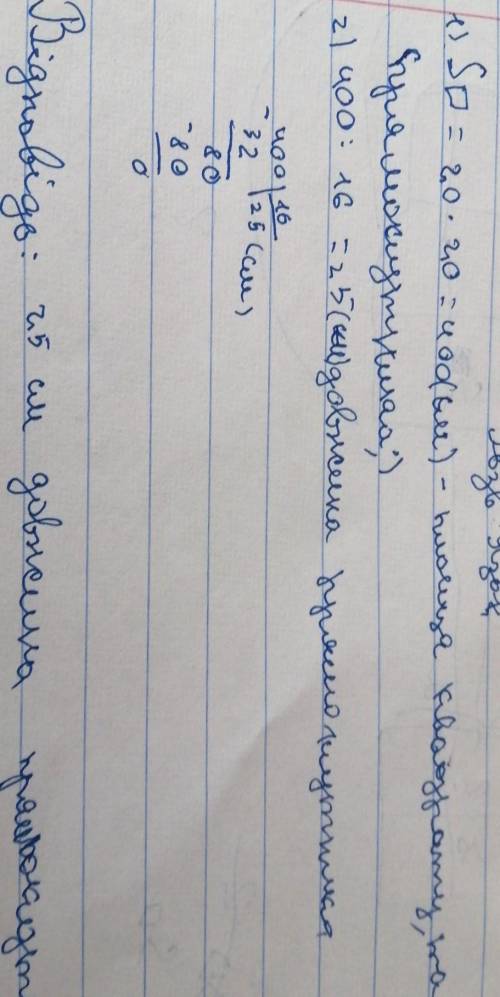 1) S□ = 20 · 20 = 400(см) - площа квадрату, та
прямокутника;)
2) 400 : 16 = 25(см) довжина прямокутника
400|16
-32 |25 (см)
80
-80
0
Відповідь: 25 см довжина прямокут